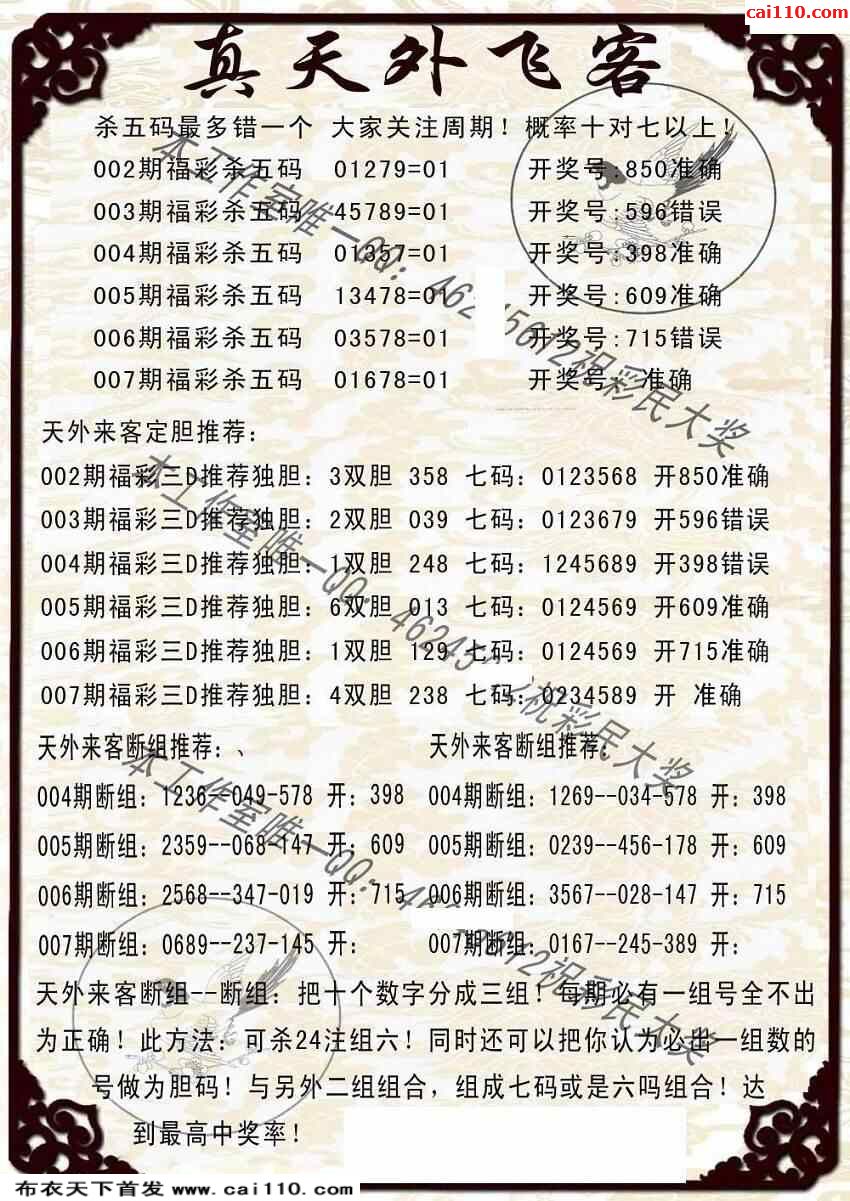 cai110.com
真天外飞客
杀五码最多错一个 大家关注周期！概率十对七以上！
002期福彩杀五码 01279=01 开奖号:850准确
003期福彩杀五码 45789=01 开奖号:596错误
004期福彩杀五码 01357=01 开奖号:398准确
005期福彩杀五码 13478=01 开奖号:609准确
006期福彩杀五码 03578=01 开奖号:715错误
007期福彩杀五码 01678=01 开奖号 准确
天外来客定胆推荐：
002期福彩三D推荐独胆：3双胆 358 七码：0123568 开850准确
003期福彩三D推荐独胆：2双胆 039 七码：0123679 开596错误
004期福彩三D推荐独胆：1双胆 248 七码：1245689 开398错误
005期福彩三D推荐独胆：6双胆 013 七码：0124569 开609准确
006期福彩三D推荐独胆：1双胆 129 七码：0124569 开715准确
007期福彩三D推荐独胆：4双胆 238 七码：0234589 开 准确
天外来客断组推荐：、 天外来客断组推荐：
004期断组：1236--049-578 开：398 004期断组：1269--034-578 开：398
005期断组：2359--068-147 开：609 005期断组：0239--456-178 开：609
006期断组：2568--347-019 开：715 006期断组：3567--028-147 开：715
007期断组：0689--237-145 开： 007期断组：0167--245-389 开：
天外来客断组--断组：把十个数字分成三组！每期必有一组号全不出
为正确！此方法：可杀24注组六！同时还可以把你认为必出一组数的
号做为胆码！与另外二组组合，组成七码或是六吗组合！达
到最高中奖率！
本工作室唯一QQ：462 5612祝彩民大奖
本工作室唯一QQ：46245 2祝彩民大奖
本工作室唯一QQ：46 5612祝彩民大奖
布衣天下首发 www.cai110.com